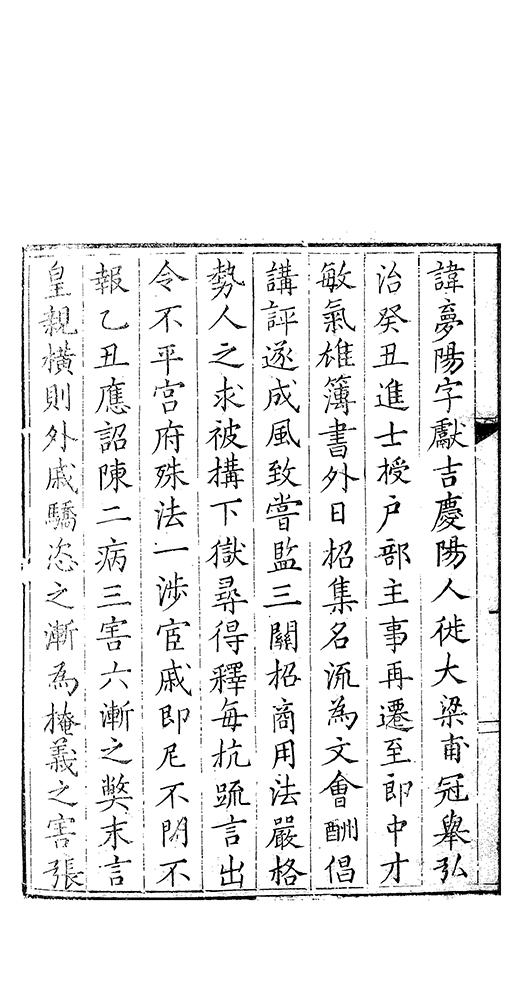 諱夢陽字獻吉慶陽人徙大梁甫冠舉弘
治癸丑進士授户部主事再遷至郎中才
敏氣雄簿書外日招集名流為文會酬倡
講評遂成風致嘗監三關招商用法嚴格
勢人之求被搆下獄尋得釋每抗䟽言出
令不平宫府殊法一涉宦戚即尼不閉不
報乙丑應詔陳二病三害六漸之獘末言
皇親横則外戚驕恣之漸為掩義之害張